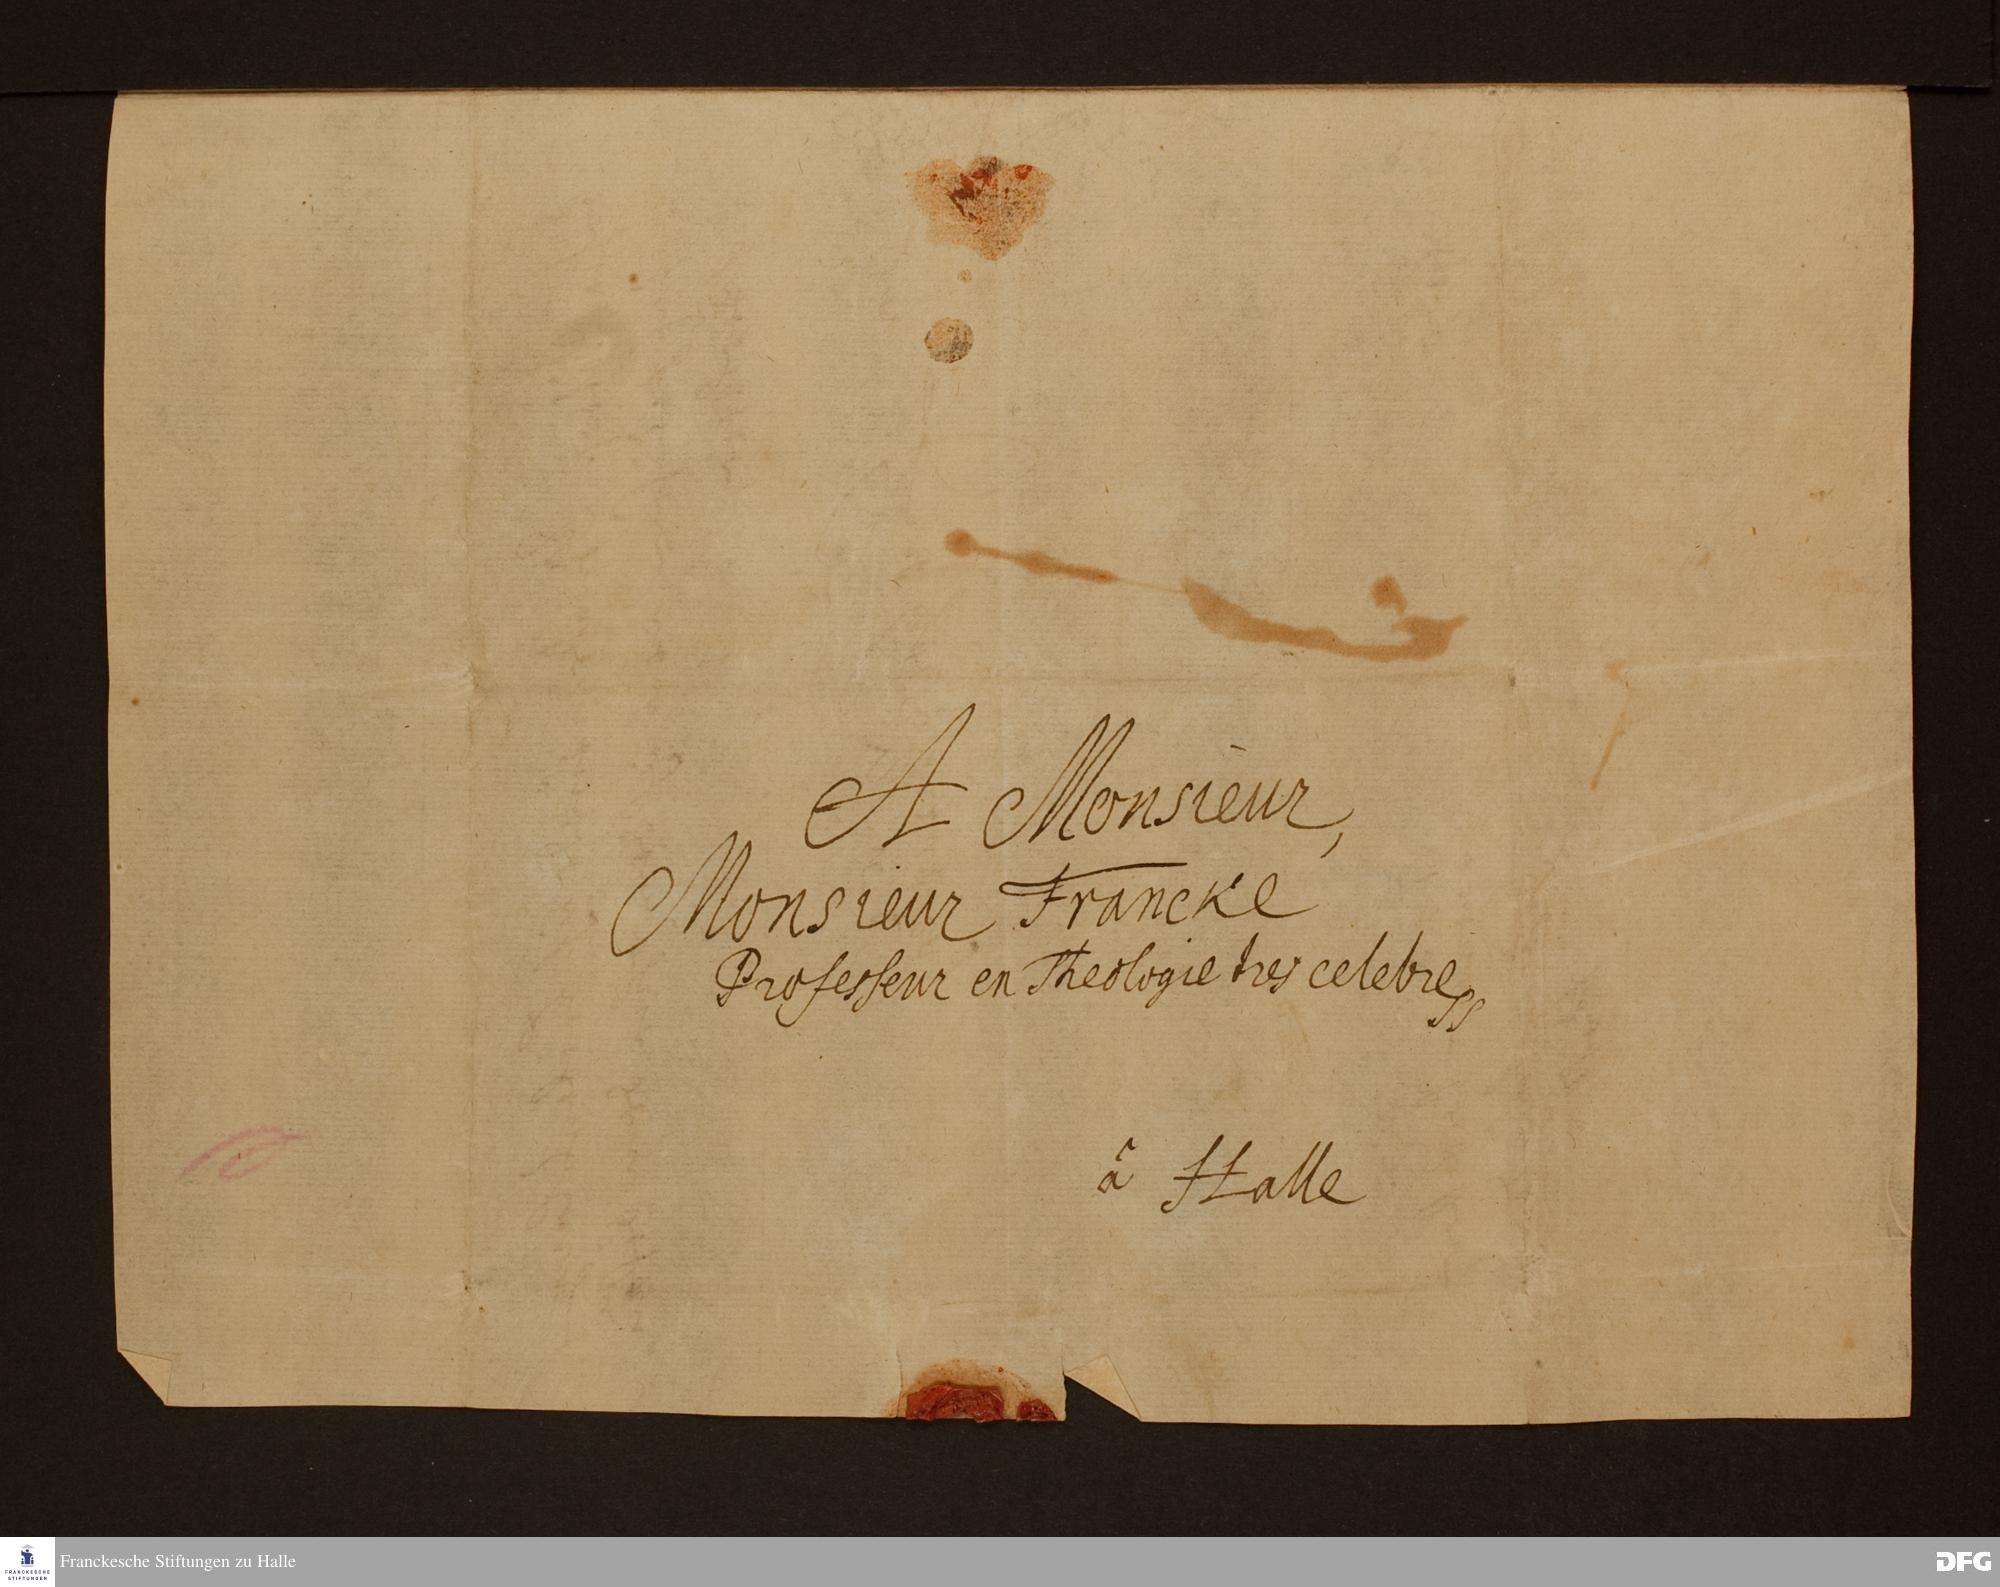 A Monsieur,
Monsieur Francke
Professeur en Theologie tres celebre
â Halle
Franckesche Stiftungen zu Halle
FRANCKESCHE
STIFTUNGEN
DFG